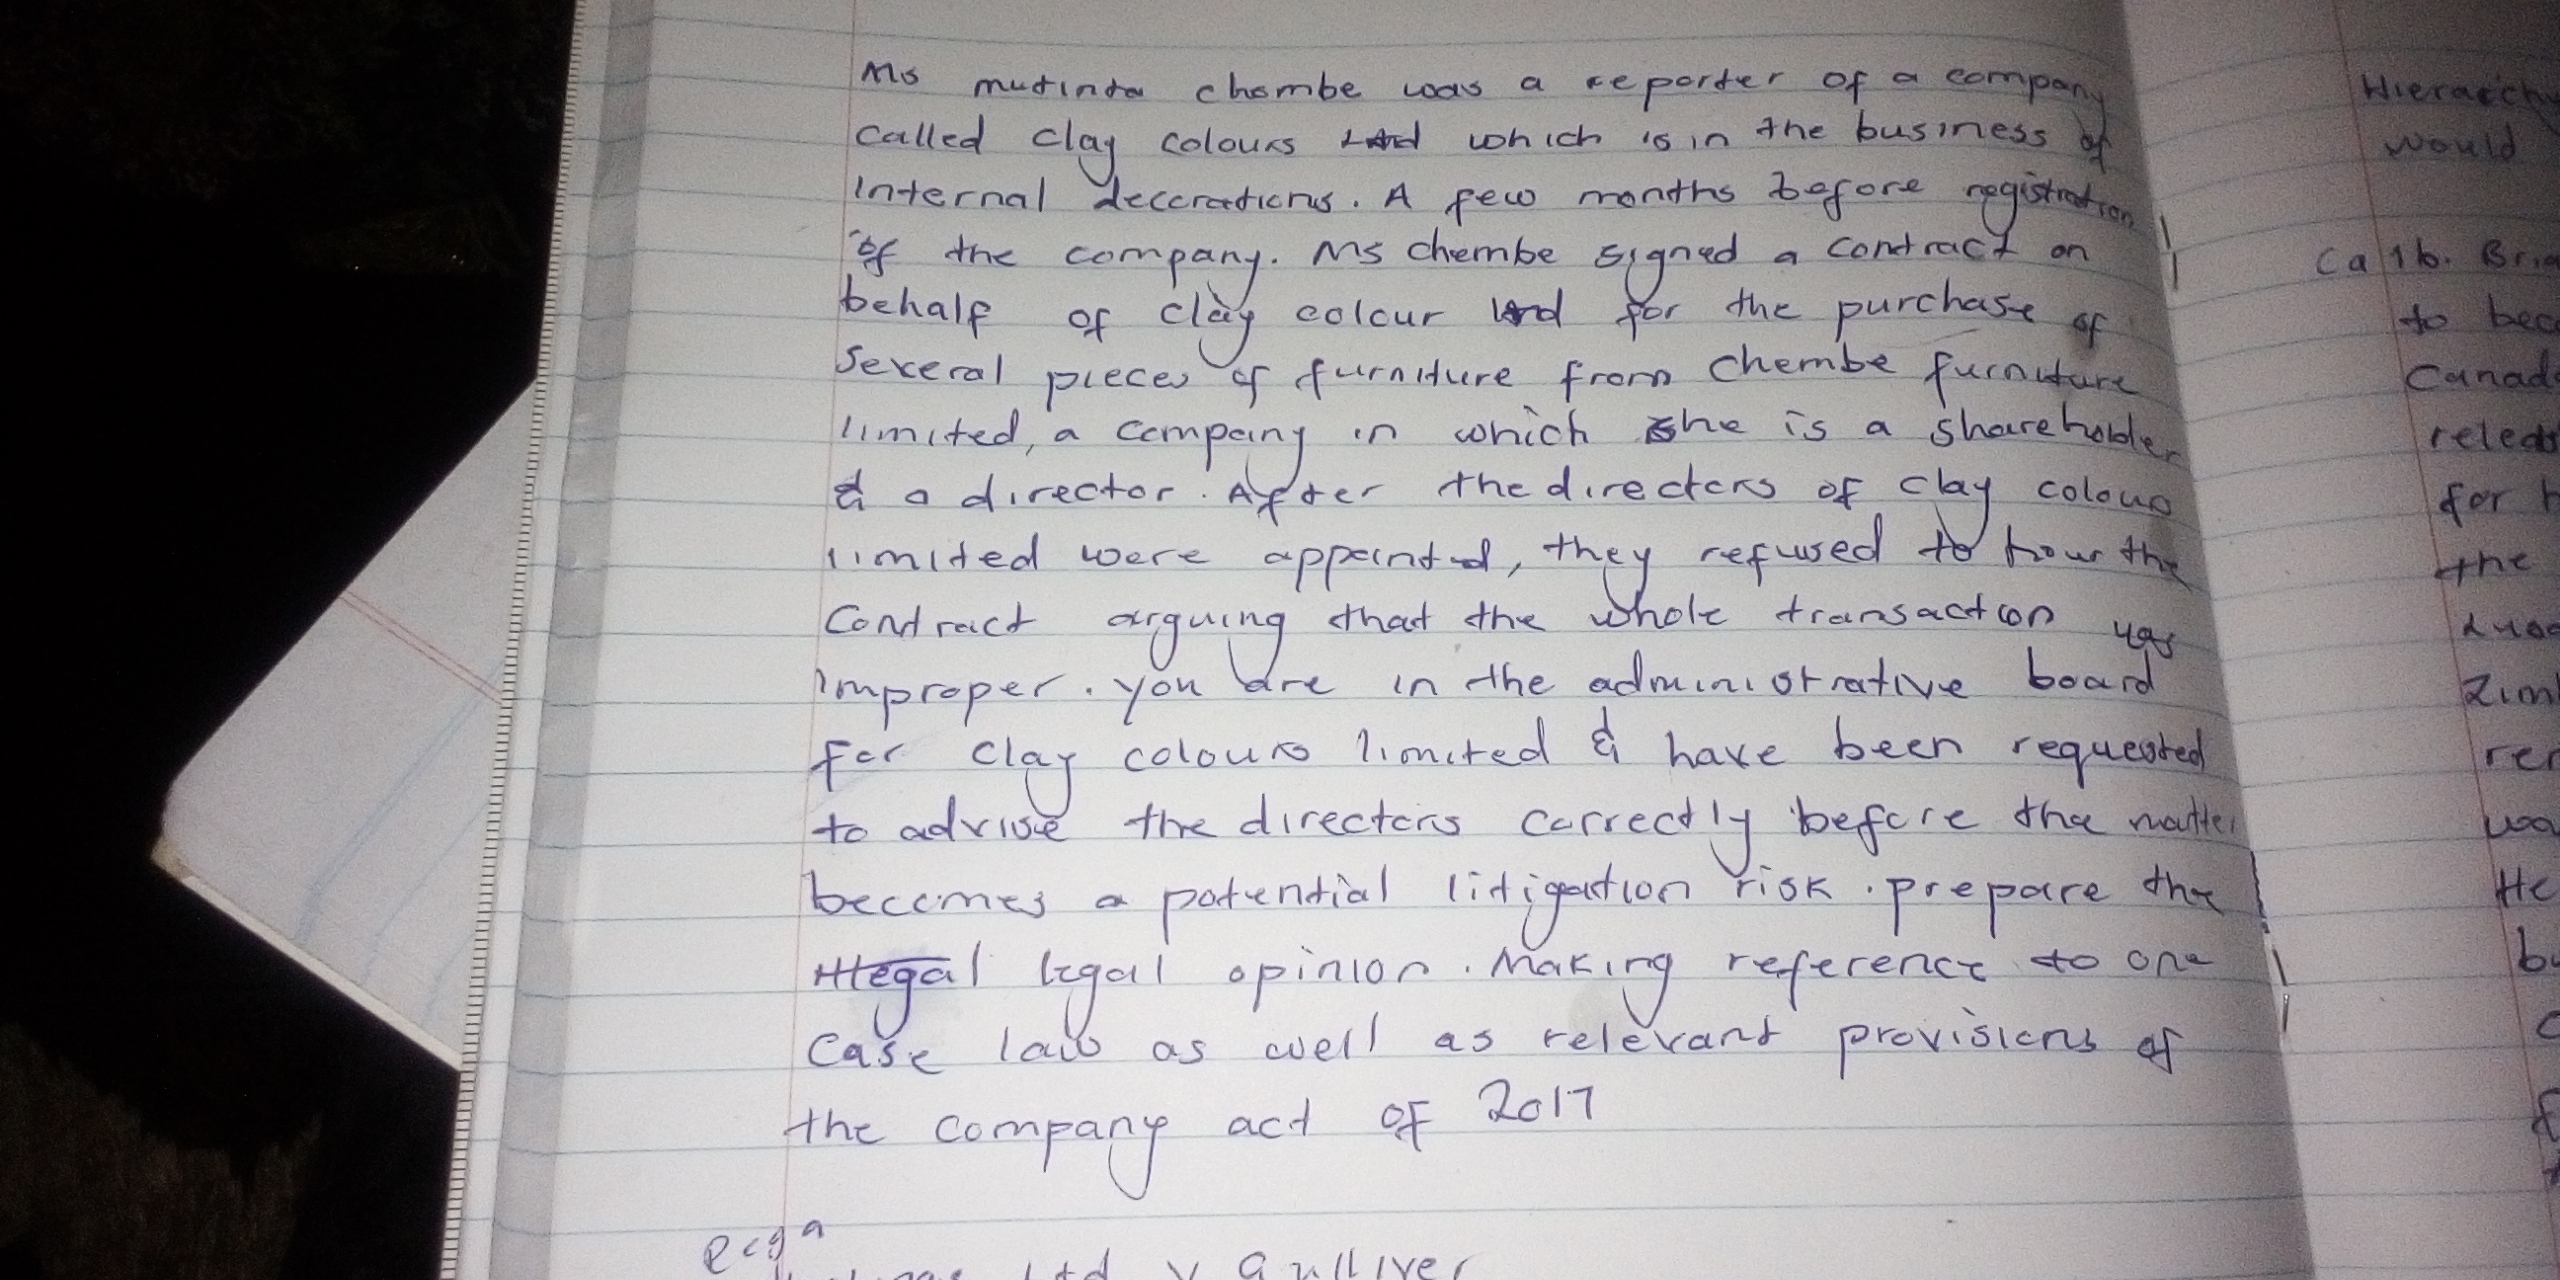 Ms mutinta chembe was a reporter of a company
called clay colours Ltd which is in the business of
internal decorations. A few months before registration
of the company. Ms chembe signed a contract on
behalf of clay colour Ltd for the purchase of
several pieces of furniture from chembe furniture
limited, a company in which she is a shareholder
& a director. After the directors of clay colour
limited were appointed, they refused to hour the
contract arguing that the whole transaction was
improper. you are in the administrative board
for clay colours limited & have been requested
to advise the directors correctly before the matter
becomes a potential litigation risk. prepare the
legal opinion. Making reference to one
case law as well as relevant provisions of
the company act of 2017
Ltd v Gulliver
Hierarchy
would
to
for
the
He